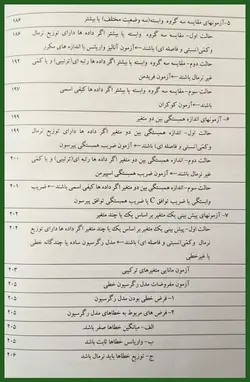 ۵-آزمونهای مقایسه سه گروه وابسته(سه وضعیت مختلف) یا بیشتر ۱۸۶
حالت اول- مقایسه سه گروه وابسته یا بیشتر اگر داده ها دارای توزیع نرمال ۱۸۷
وکمّی(نسبتی و فاصله ای) باشند←آزمون آنالیز واریانس با اندازه های مکرر
حالت دوم- مقایسه سه گروه وابسته یا بیشتر اگر داده ها رتبه ای(ترتیبی) و یا کمّی ۱۹۲
غیر نرمال باشند←آزمون فریدمن
حالت سوم- مقایسه سه گروه وابسته یا بیشتر اگر داده ها کیفی اسمی ۱۹۷
باشند←آزمون کوکران
۶-آزمونهای اندازه همبستگی بین دو متغیر ۱۹۹
حالت اول- اندازه همبستگی بین دو متغیر اگر داده ها دارای توزیع نرمال ۱۹۹
وکمّی(نسبتی و فاصله ای) باشند← آزمون ضریب همبستگی پیرسون
حالت دوم- اندازه همبستگی بین دو متغیر اگر داده ها رتبه ای(ترتیبی) و یا کمّی ۲۰۰
غیر نرمال باشند←آزمون ضریب همبستگی اسپیرمن
حالت سوم- اندازه همبستگی بین دو متغیر اگر داده ها کیفی اسمی باشند← ضریب ۲۰۱
وابستگی یا ضریب توافق C یا ضریب همبستگی توافقی پیرسون
۷- آزمونهای پیش بینی یک متغیر بر اساس یک یا چند متغیر ۲۰۲
حالت اول- پیش بینی یک متغیر بر اساس یک یا چند متغیر اگر داده ها دارای توزیع ۲۰۲
نرمال وکمّی(نسبتی و فاصله ای) باشند← مدل رگرسیون ساده یا چندگانه خطی
یا غیرخطی
آزمون مانایی متغیرهای ترکیبی ۲۰۳
آزمون مفروضات مدل رگرسیون خطی ۲۰۵
۱- فرض خطی بودن مدل رگرسیون ۲۰۵
۲- فرض های مربوط به خطاهای مدل رگرسیون ۲۰۵
الف- میانگین خطاها صفر باشد ۲۰۵
ب- واریانس خطاها ثابت باشد ۲۰۵
ج- توزیع خطاها باید نرمال باشد ۲۰۶